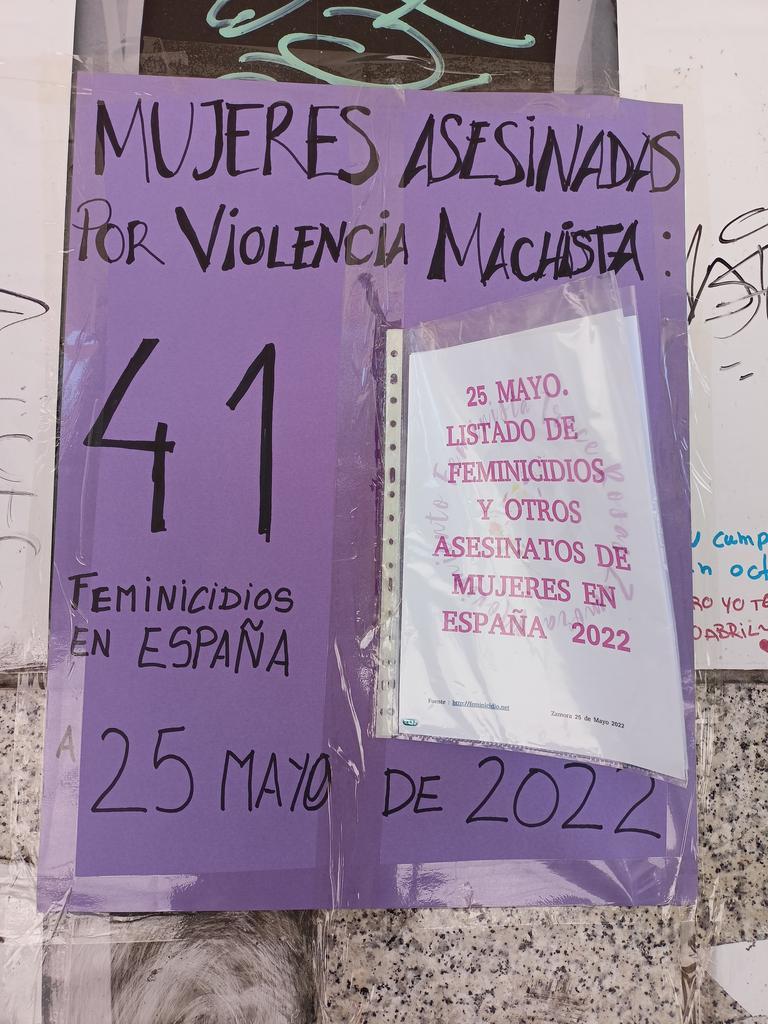 MUJERES ASESINADAS
POR VIOLENCIA MACHISTA:
41
FEMINICIDIOS
EN ESPAÑA
A 25 MAYO DE 2022
25 MAYO.
LISTADO DE
FEMINICIDIOS
Y OTROS
ASESINATOS DE
MUJERES EN
ESPAÑA 2022
Fuente : http://feminicidio.net
Zamora 25 de Mayo 2022
cump
n oct
YO TE
ABRIL